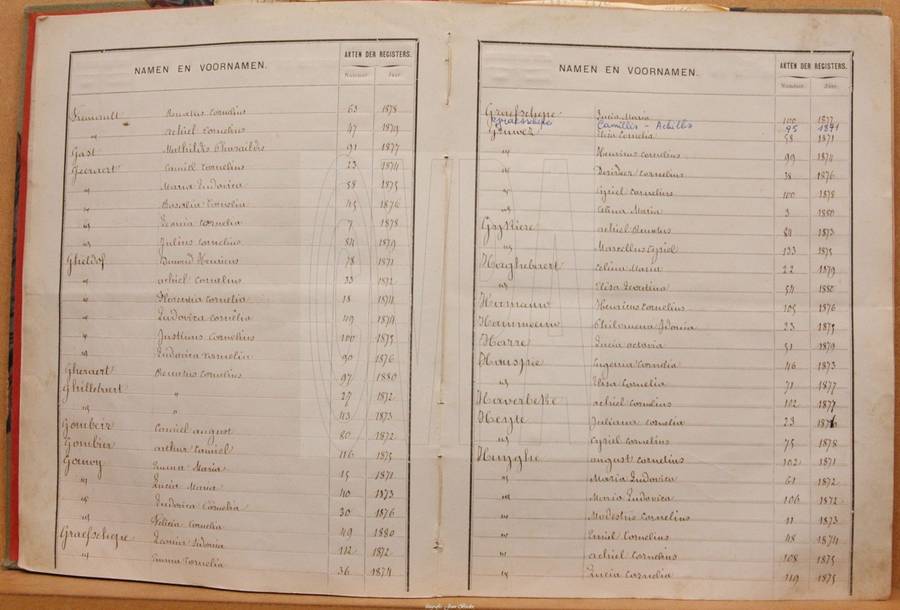 NAMEN EN VOORNAMEN. AKTEN DER REGISTERS.
Nummer Jaar
Fremault Renatus Cornelius 63 1878
" achiel Cornelius 47 1879
Gast Mathildis 91 1877
Geeraert Camiel Cornelius 23 1874
" Maria Ludovica 58 1875
" Rosalia Cornelia 45 1876
" Leonia Cornelia 7 1878
" Julius Cornelius 84 1879
Gheldof Henricus 78 1871
" achiel Cornelius 33 1872
" Florentia Cornelia 18 1874
" Ludovica Cornelia 49 1874
" Justinus Cornelius 100 1875
" Ludovica Cornelia 90 1876
Gheraert Renatus Cornelius 97 1880
Ghillebaert " 27 1872
" " 43 1873
Gombeir Camiel august 80 1872
Gombier arthur Camiel 116 1875
Gouwy Emma Maria 15 1871
" Lucia Maria 40 1873
" Ludovica Cornelia 30 1876
" Felicia Cornelia 49 1880
Graefschepe Leonia Sidonia 112 1872
" Emma Cornelia 36 1874
NAMEN EN VOORNAMEN. AKTEN DER REGISTERS.
Nummer Jaar
Graefschepe Lucia Maria 100 1877
Graefschepe Camillis - Achilles 95 1891
Elisa Cornelia 58 1871
" Henricus Cornelius 99 1874
" Desideer Cornelius 38 1876
" Cyriel Cornelius 100 1878
" Celina Maria 3 1880
achiel Renatus 84 1873
" Marcellus Cyriel 133 1875
Haghebaert Celina Maria 22 1879
" Elisa Leontina 54 1880
Hermann Henricus Cornelius 105 1876
Philomena Sidonia 23 1875
Harre Lucia octavia 51 1879
Hauspie Eugenia Cornelia 46 1873
" Elisa Cornelia 71 1877
Haverbeke achiel Cornelius 102 1877
Heyte Juliana Cornelia 23 1876
" Cyriel Cornelius 75 1878
august Cornelius 102 1871
" Maria Ludovica 61 1872
" Maria Ludovica 106 1872
" Modestus Cornelius 11 1873
" Emiel Cornelius 48 1874
" achiel Cornelius 108 1875
" Lucia Cornelia 119 1875